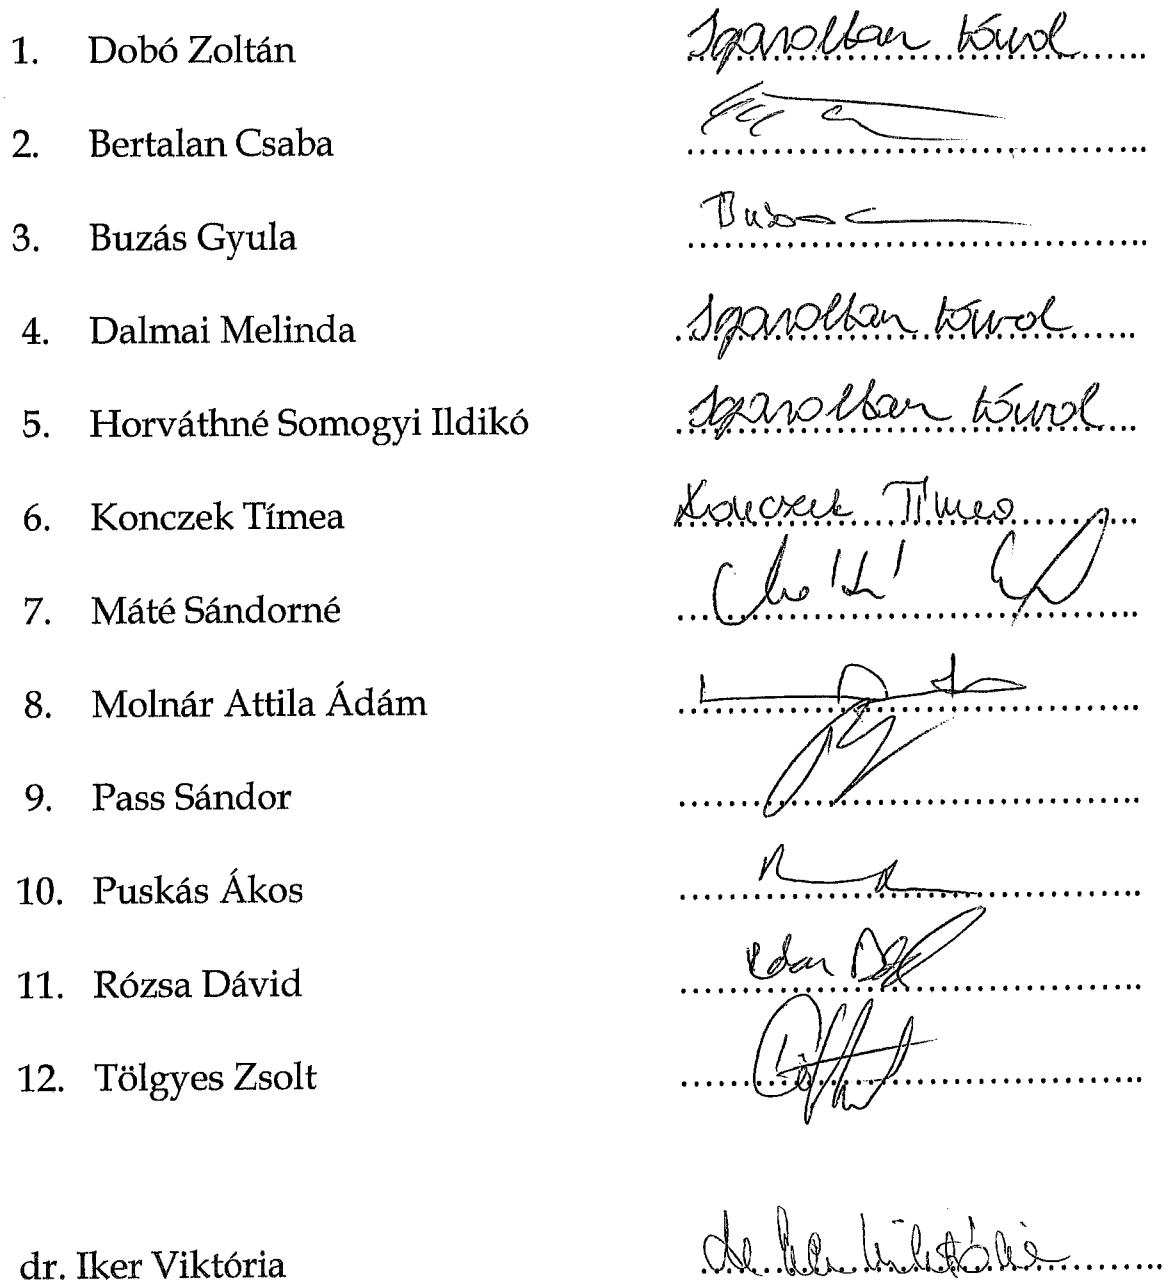 1. Dobó Zoltán Igazoltan távol
2. Bertalan Csaba
3. Buzás Gyula
4. Dalmai Melinda Igazoltan távol
5. Horváthné Somogyi Ildikó Igazoltan távol
6. Konczek Tímea Konczek Tímea
7. Máté Sándorné
8. Molnár Attila Ádám
9. Pass Sándor
10. Puskás Ákos
11. Rózsa Dávid
12. Tölgyes Zsolt
dr. Iker Viktória